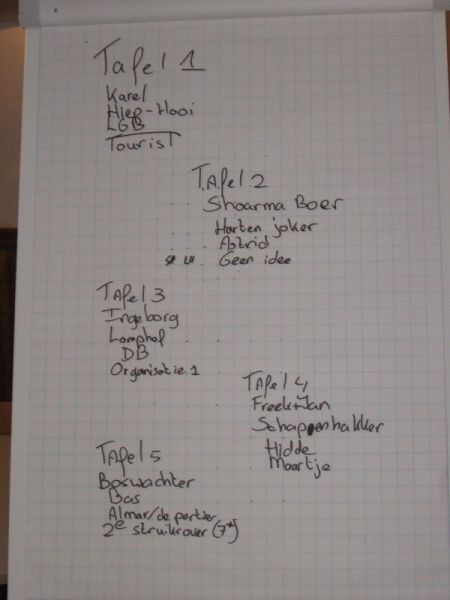 Tafel 1
Karel
Hiep-Hooi
LGB
Tourist
Tafel 2
Shoarma Boer
Harten joker
Astrid
Geen idee
Tafel 3
Ingeborg
DB
Organisatie 1
Tafel 4
Freek+Jan
Schappenhakker
Hidde
Maartje
Tafel 5
Boswachter
Bas
Almar/de portier
2e struikrover (7*)